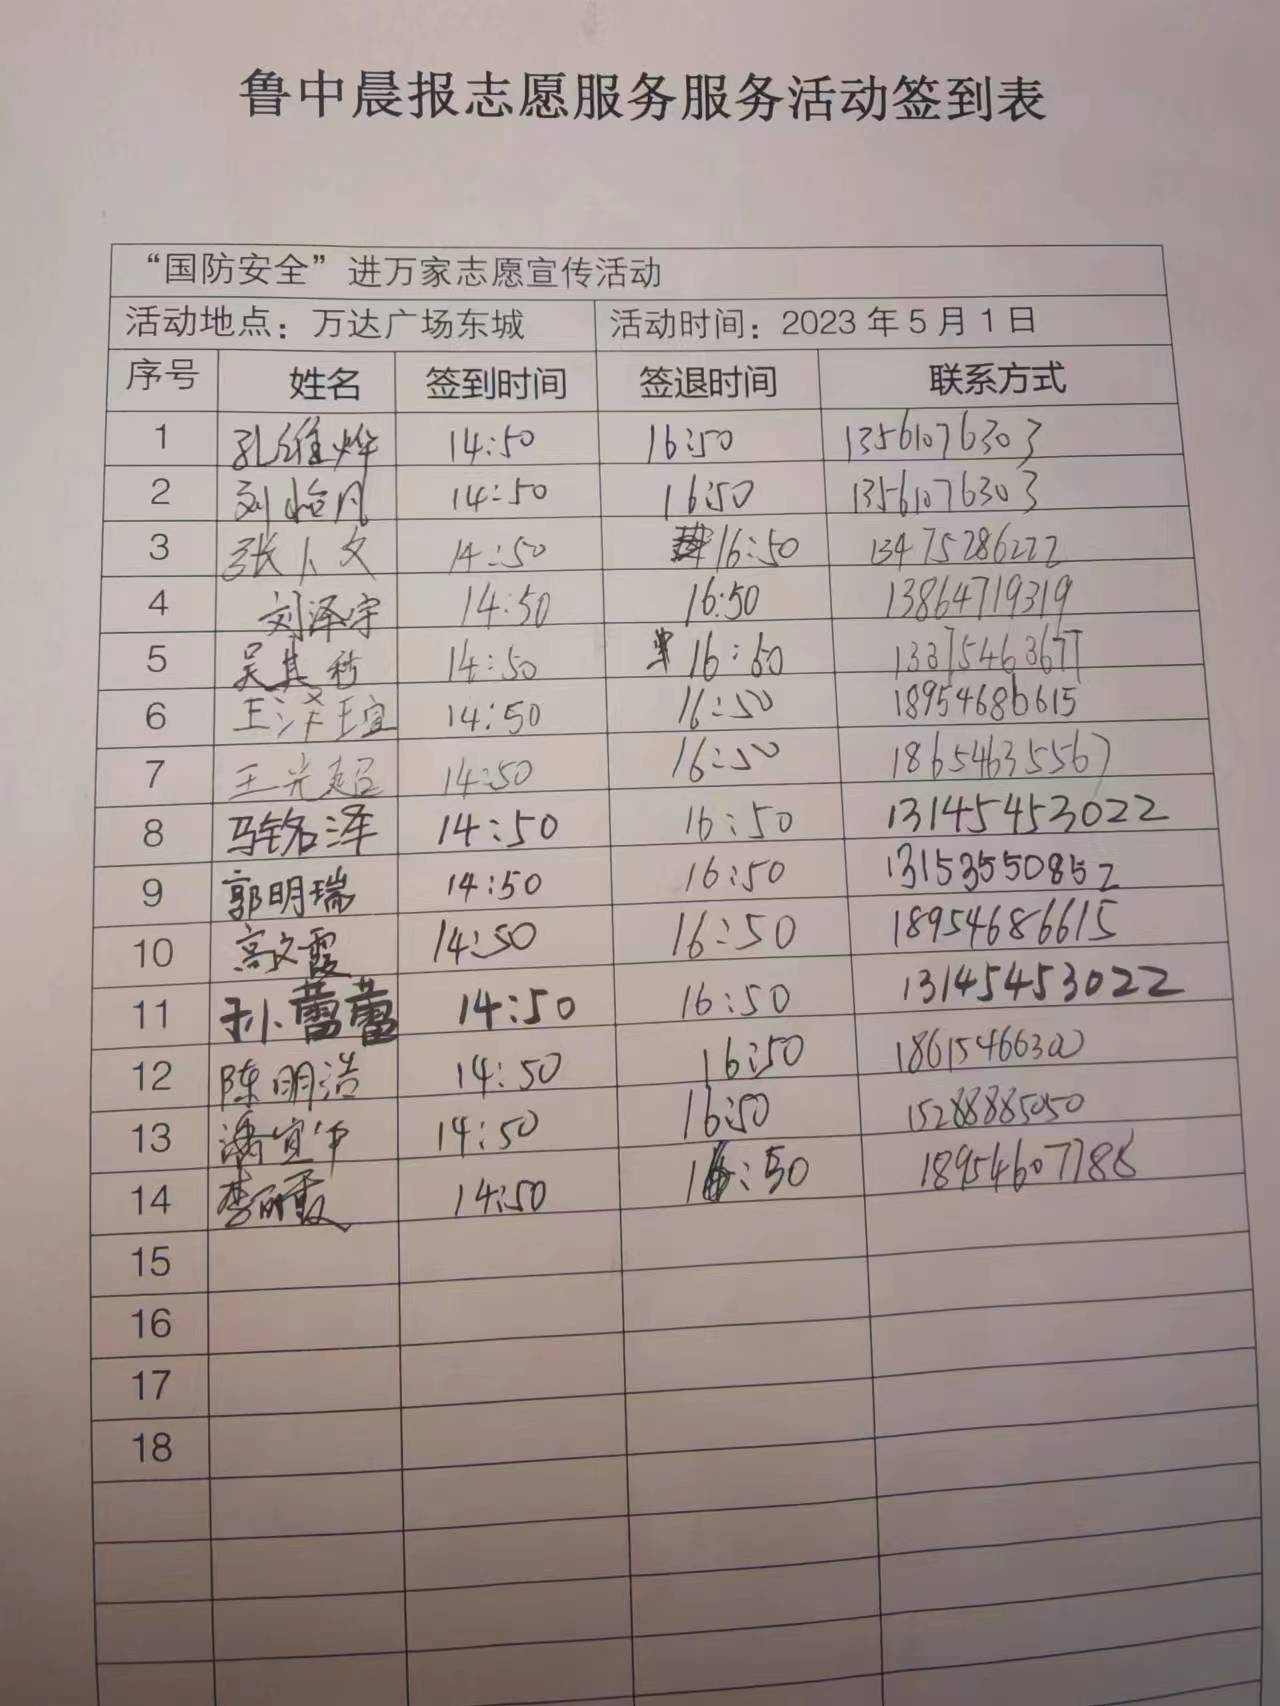 鲁中晨报志愿服务服务活动签到表
“国防安全”进万家志愿宣传活动
活动地点：万达广场东城 活动时间：2023年5月1日
序号 姓名 签到时间 签退时间 联系方式
1 孔维烨 14:50 16:50 13561076303
2 刘怡凡 14:50 16:50 13561076303
3 张卜文 14:50 16:50 13475286222
4 刘泽宇 14:50 16:50 13864719319
5 吴其 14:50 16:50 13375463677
6 王泽 14:50 16:50 18954686615
7 王光超 14:50 16:50 18654635567
8 马铭泽 14:50 16:50 13145453022
9 郭明瑞 14:50 16:50 13153550852
10 高文霞 14:50 16:50 18954686615
11 孙蕾蕾 14:50 16:50 13145453022
12 陈明浩 14:50 16:50 18615466300
13 潘宜 14:50 16:50 15288885050
14 李丽霞 14:50 16:50 18954607788
15
16
17
18